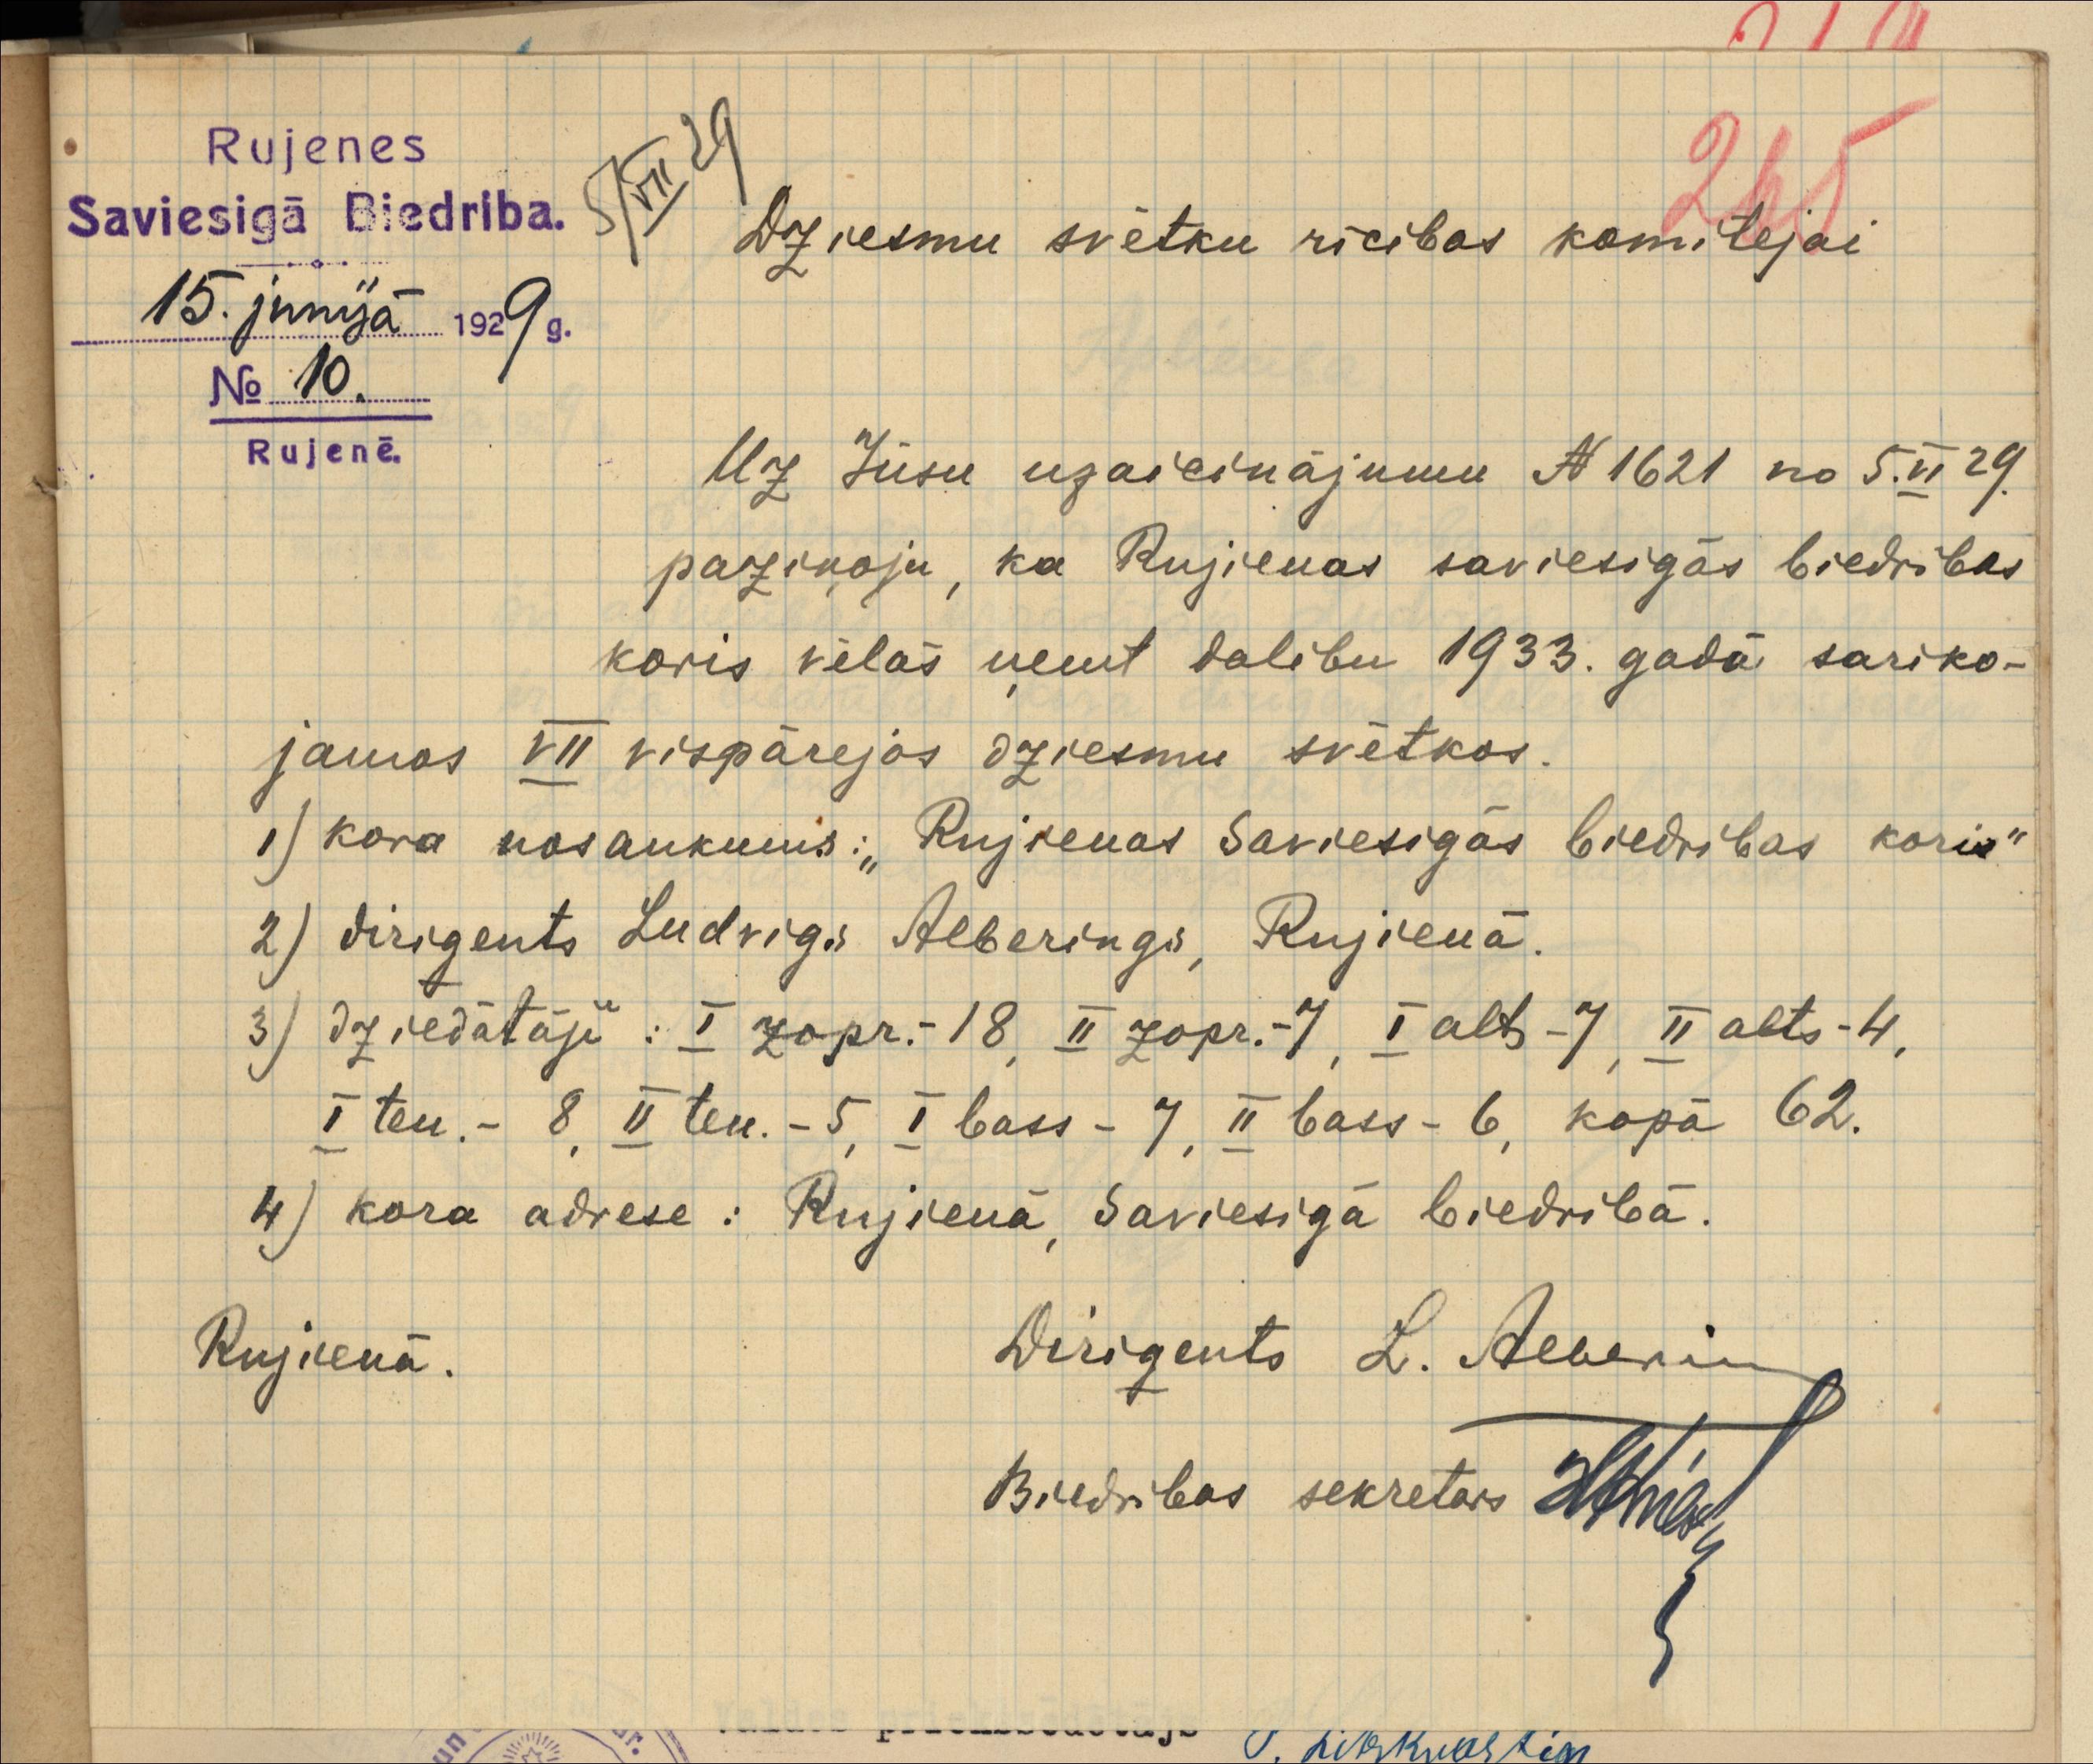 Rujenes
Saviesigā Biedriba.
15. junijā 1929 g.
№ 10.
Rujenē.
5/VII 29
265
Dziesmu svētku rīcibas komitejai
Uz Jūsu uzaicinājumu № 1621 no 5.VI 29.
paziņoju, ka Rujienas saviesīgās biedrības
koris vēlās ņemt dalību 1933. gadā sarīko-
jamos VII vispārejos dziesmu svētkos.
1) kora nosaukums: „Rujienas Saviesīgās biedrības koris“
2) dirigents Ludvigs Alberings, Rujienā.
3) dziedātāju : I zopr.- 18, II zopr.-7, I alts -7, II alts -4,
I ten.- 8, II ten. - 5, I bass - 7, II bass - 6, kopā 62.
4) kora adrese : Rujienā, Saviesīgā biedrībā.
Rujienā.
Dirigents L. Alberin
Biedribas sekretars
Valdes priekšsēdētājs